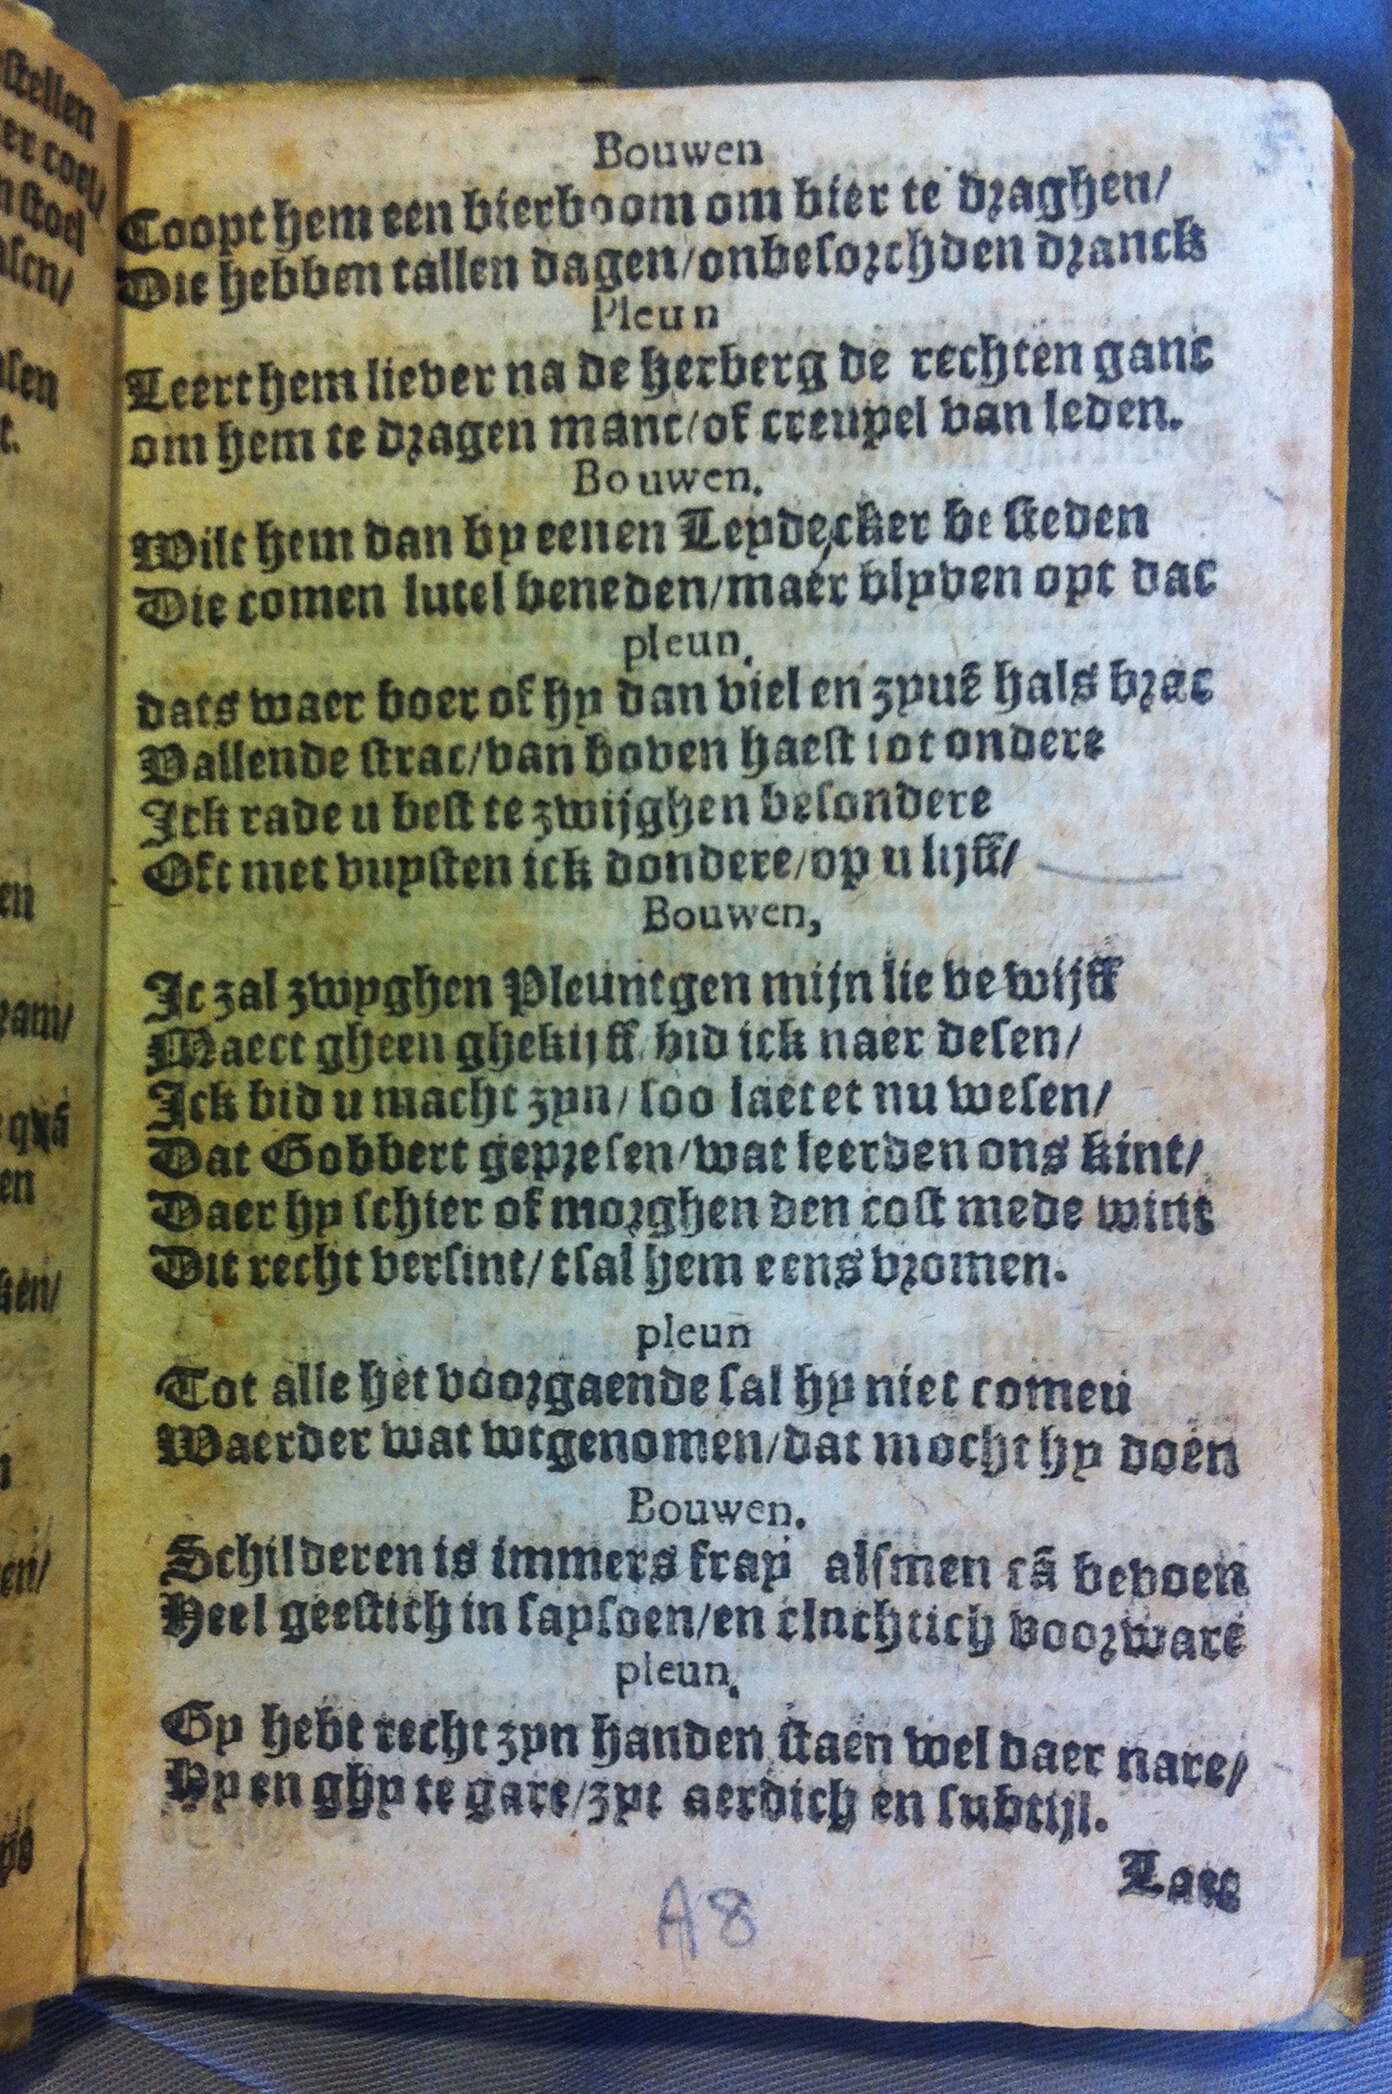 stellen
er coel/
n stoel
asen/
asen
t.
en
ram/
quā
en
ken/
en/
Bouwen
Coopt hem een bierboom om bier te draghen/
Die hebben tallen dagen/onbesorchden dranck
Pleun
Leert hem liever na de herberg de rechten ganc
om hem te dragen manc/of creupel van leden.
Bouwen.
Wilt hem dan by eenen Leydecker besteden
Die comen lutel beneden/maer blyven opt dac
pleun.
dats waer boer of hy dan viel en zynē hals brac
Vallende strac/van boven haest tot ondere
Ick rade u best te zwijghen besondere
Oft met vuysten ick dondere/op u lijff/
Bouwen,
Ic zal zwyghen Pleuntgen mijn lieve wijff
Maect gheen ghekijff/bid ick naer desen/
Ick bid u macht zyn/soo laetet nu wesen/
Dat Gobbert gepresen/wat leerden ons kint/
Daer hy schier of morghen den cost mede wint
Dit recht versint/tsal hem eens vromen.
pleun
Tot alle het voorgaende sal hy niet comen
Waerder wat wtgenomen/dat mocht hy doen
Bouwen.
Schilderen is immers fray alsmen cā bevoen
Heel geestich in saysoen/en cluchtich voorware
pleun.
Gy hebt recht zyn handen staen wel daer nare/
Hy en ghy te gare/zyt aerdich en subtijl.
Laet
A8